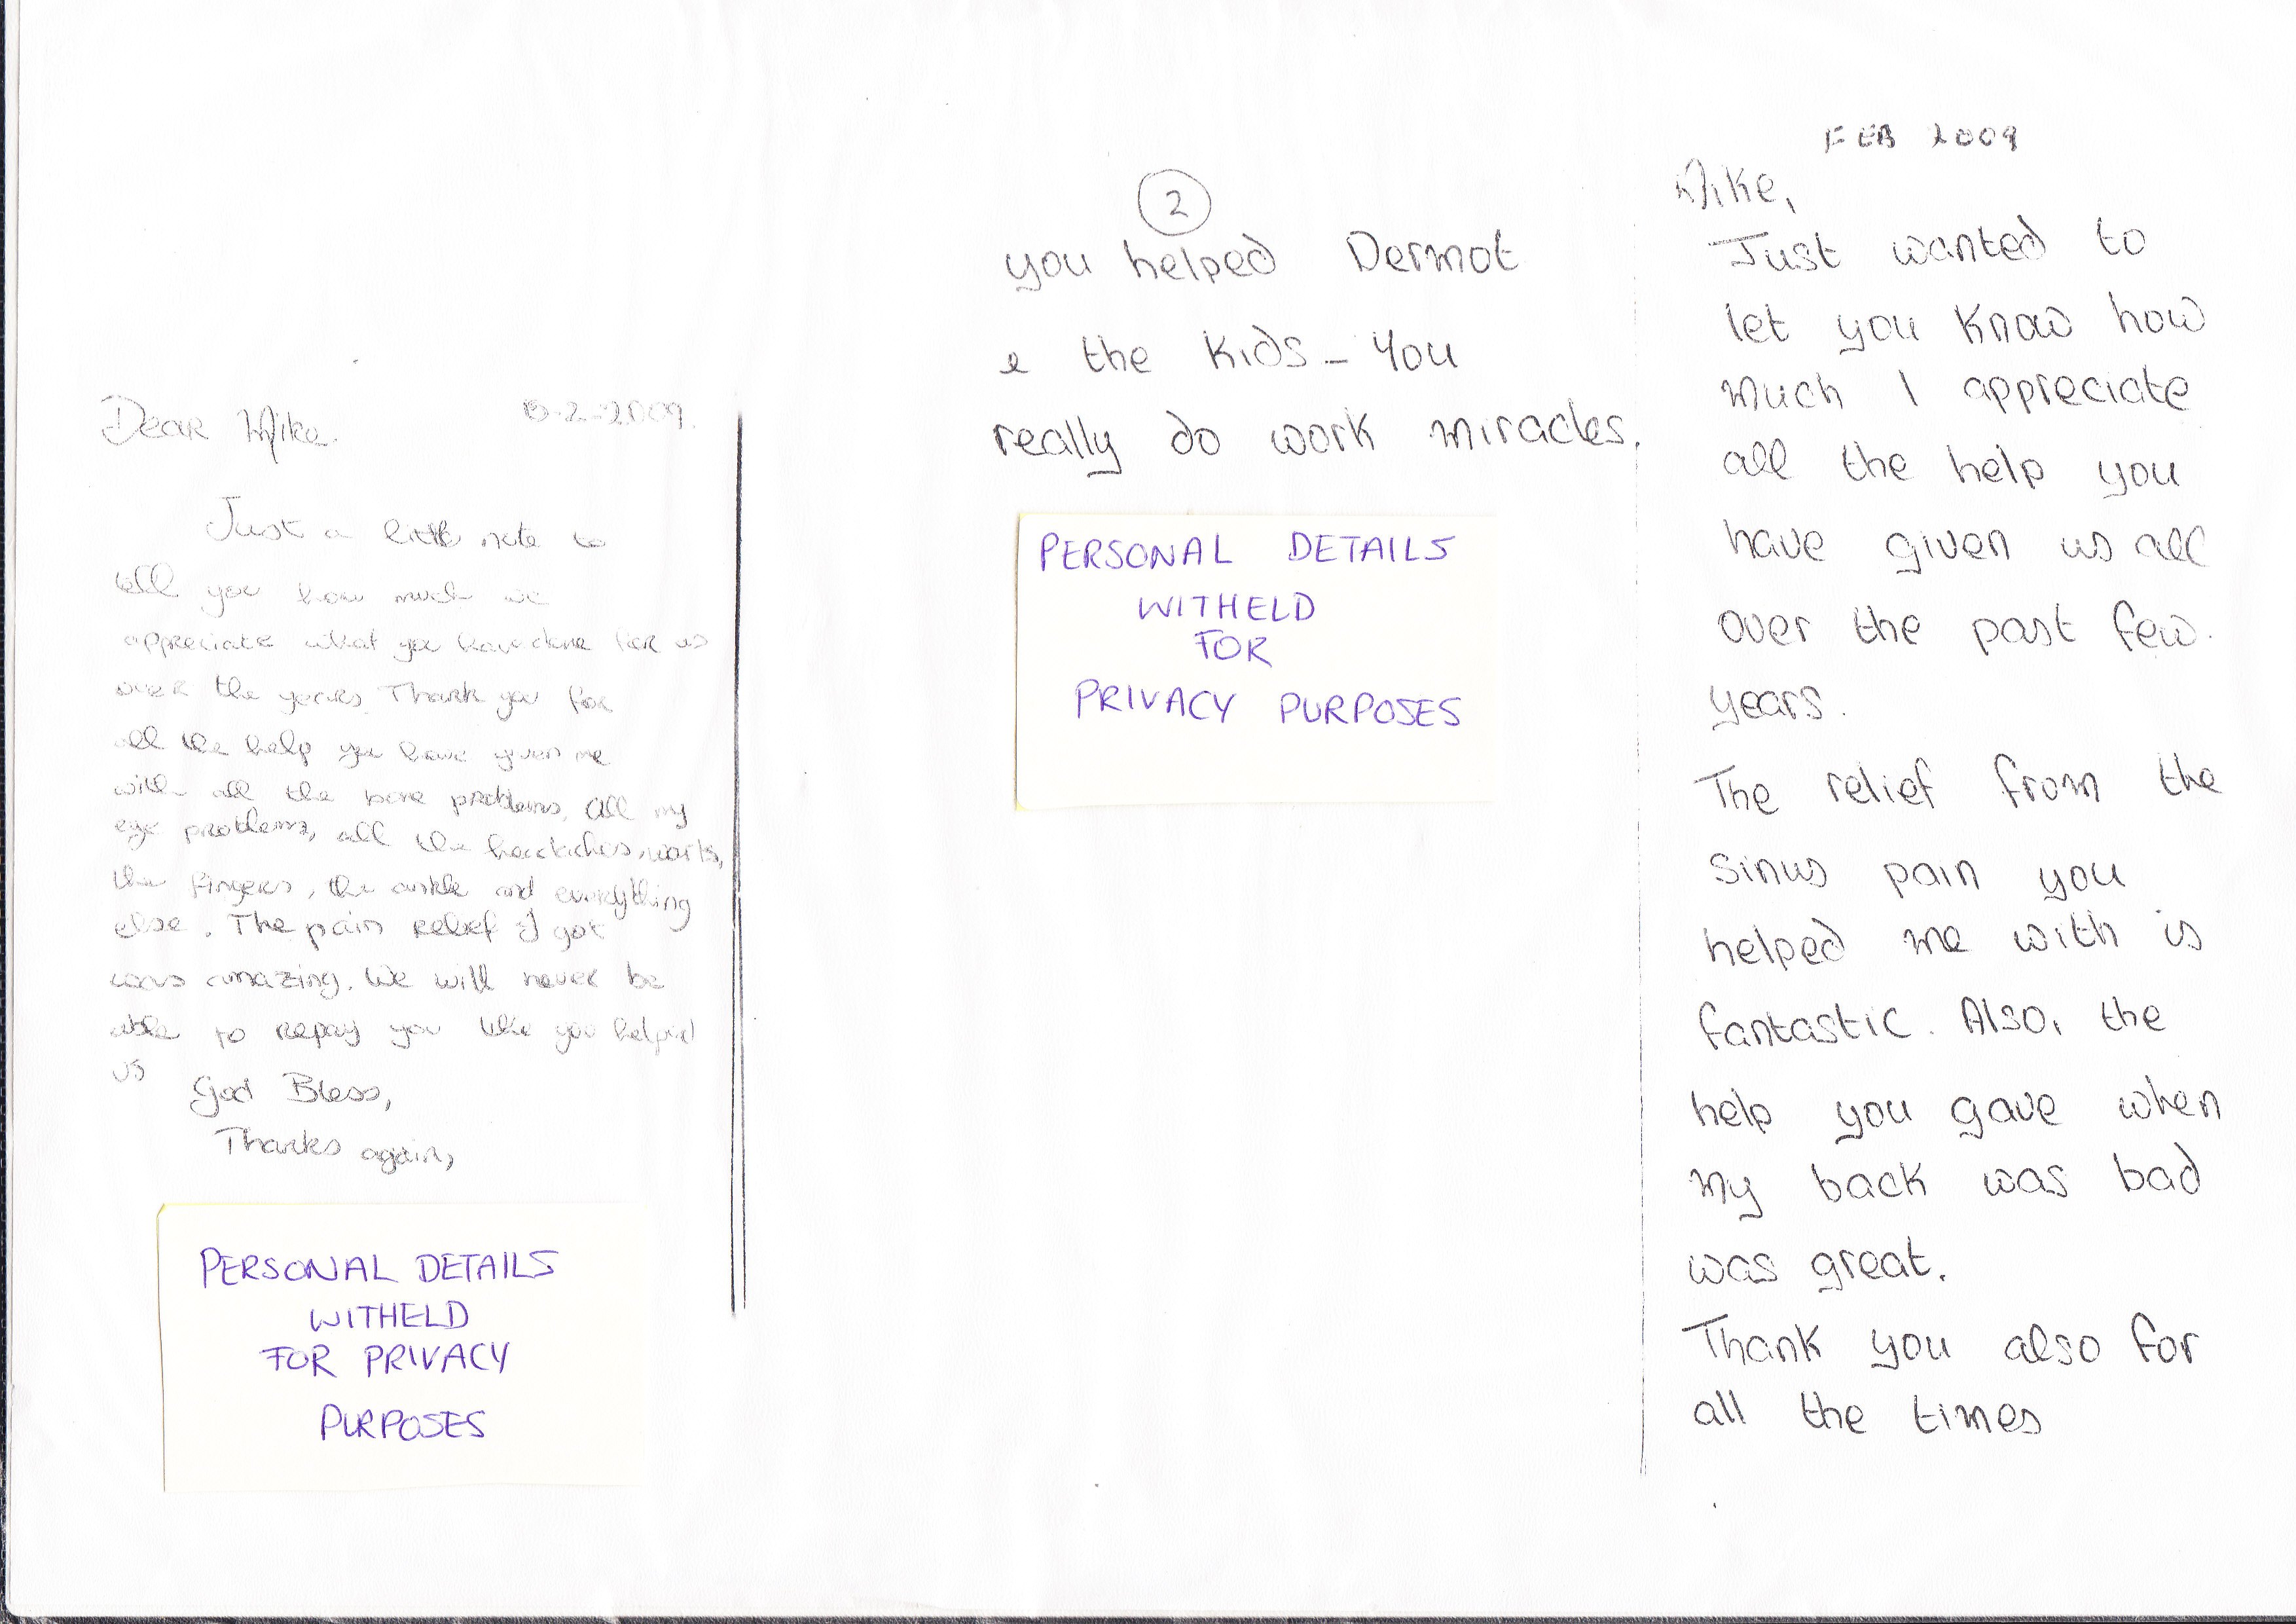 Dear Mike.
-2-2009.
Just a little note to
tell you how much we
appreciate what you have done for us
over the years. Thank you for
all the help you have given me
with all the bone problems, all my
eye problems, all the headaches, warts,
the fingers, the ankle and everything
else. The pain relief I got
was amazing. We will never be
able to repay you like you helped
us
God Bless,
Thanks again,
PERSONAL DETAILS
WITHELD
FOR PRIVACY
PURPOSES
FEB 2009
Mike,
Just wanted to
let you know how
much I appreciate
all the help you
have given us all
over the past few
years.
The relief from the
sinus pain you
helped me with is
fantastic. Also, the
help you gave when
my back was bad
was great.
Thank you also for
all the times
2
you helped Dermot
& the kids - You
really do work miracles.
PERSONAL DETAILS
WITHELD
FOR
PRIVACY PURPOSES